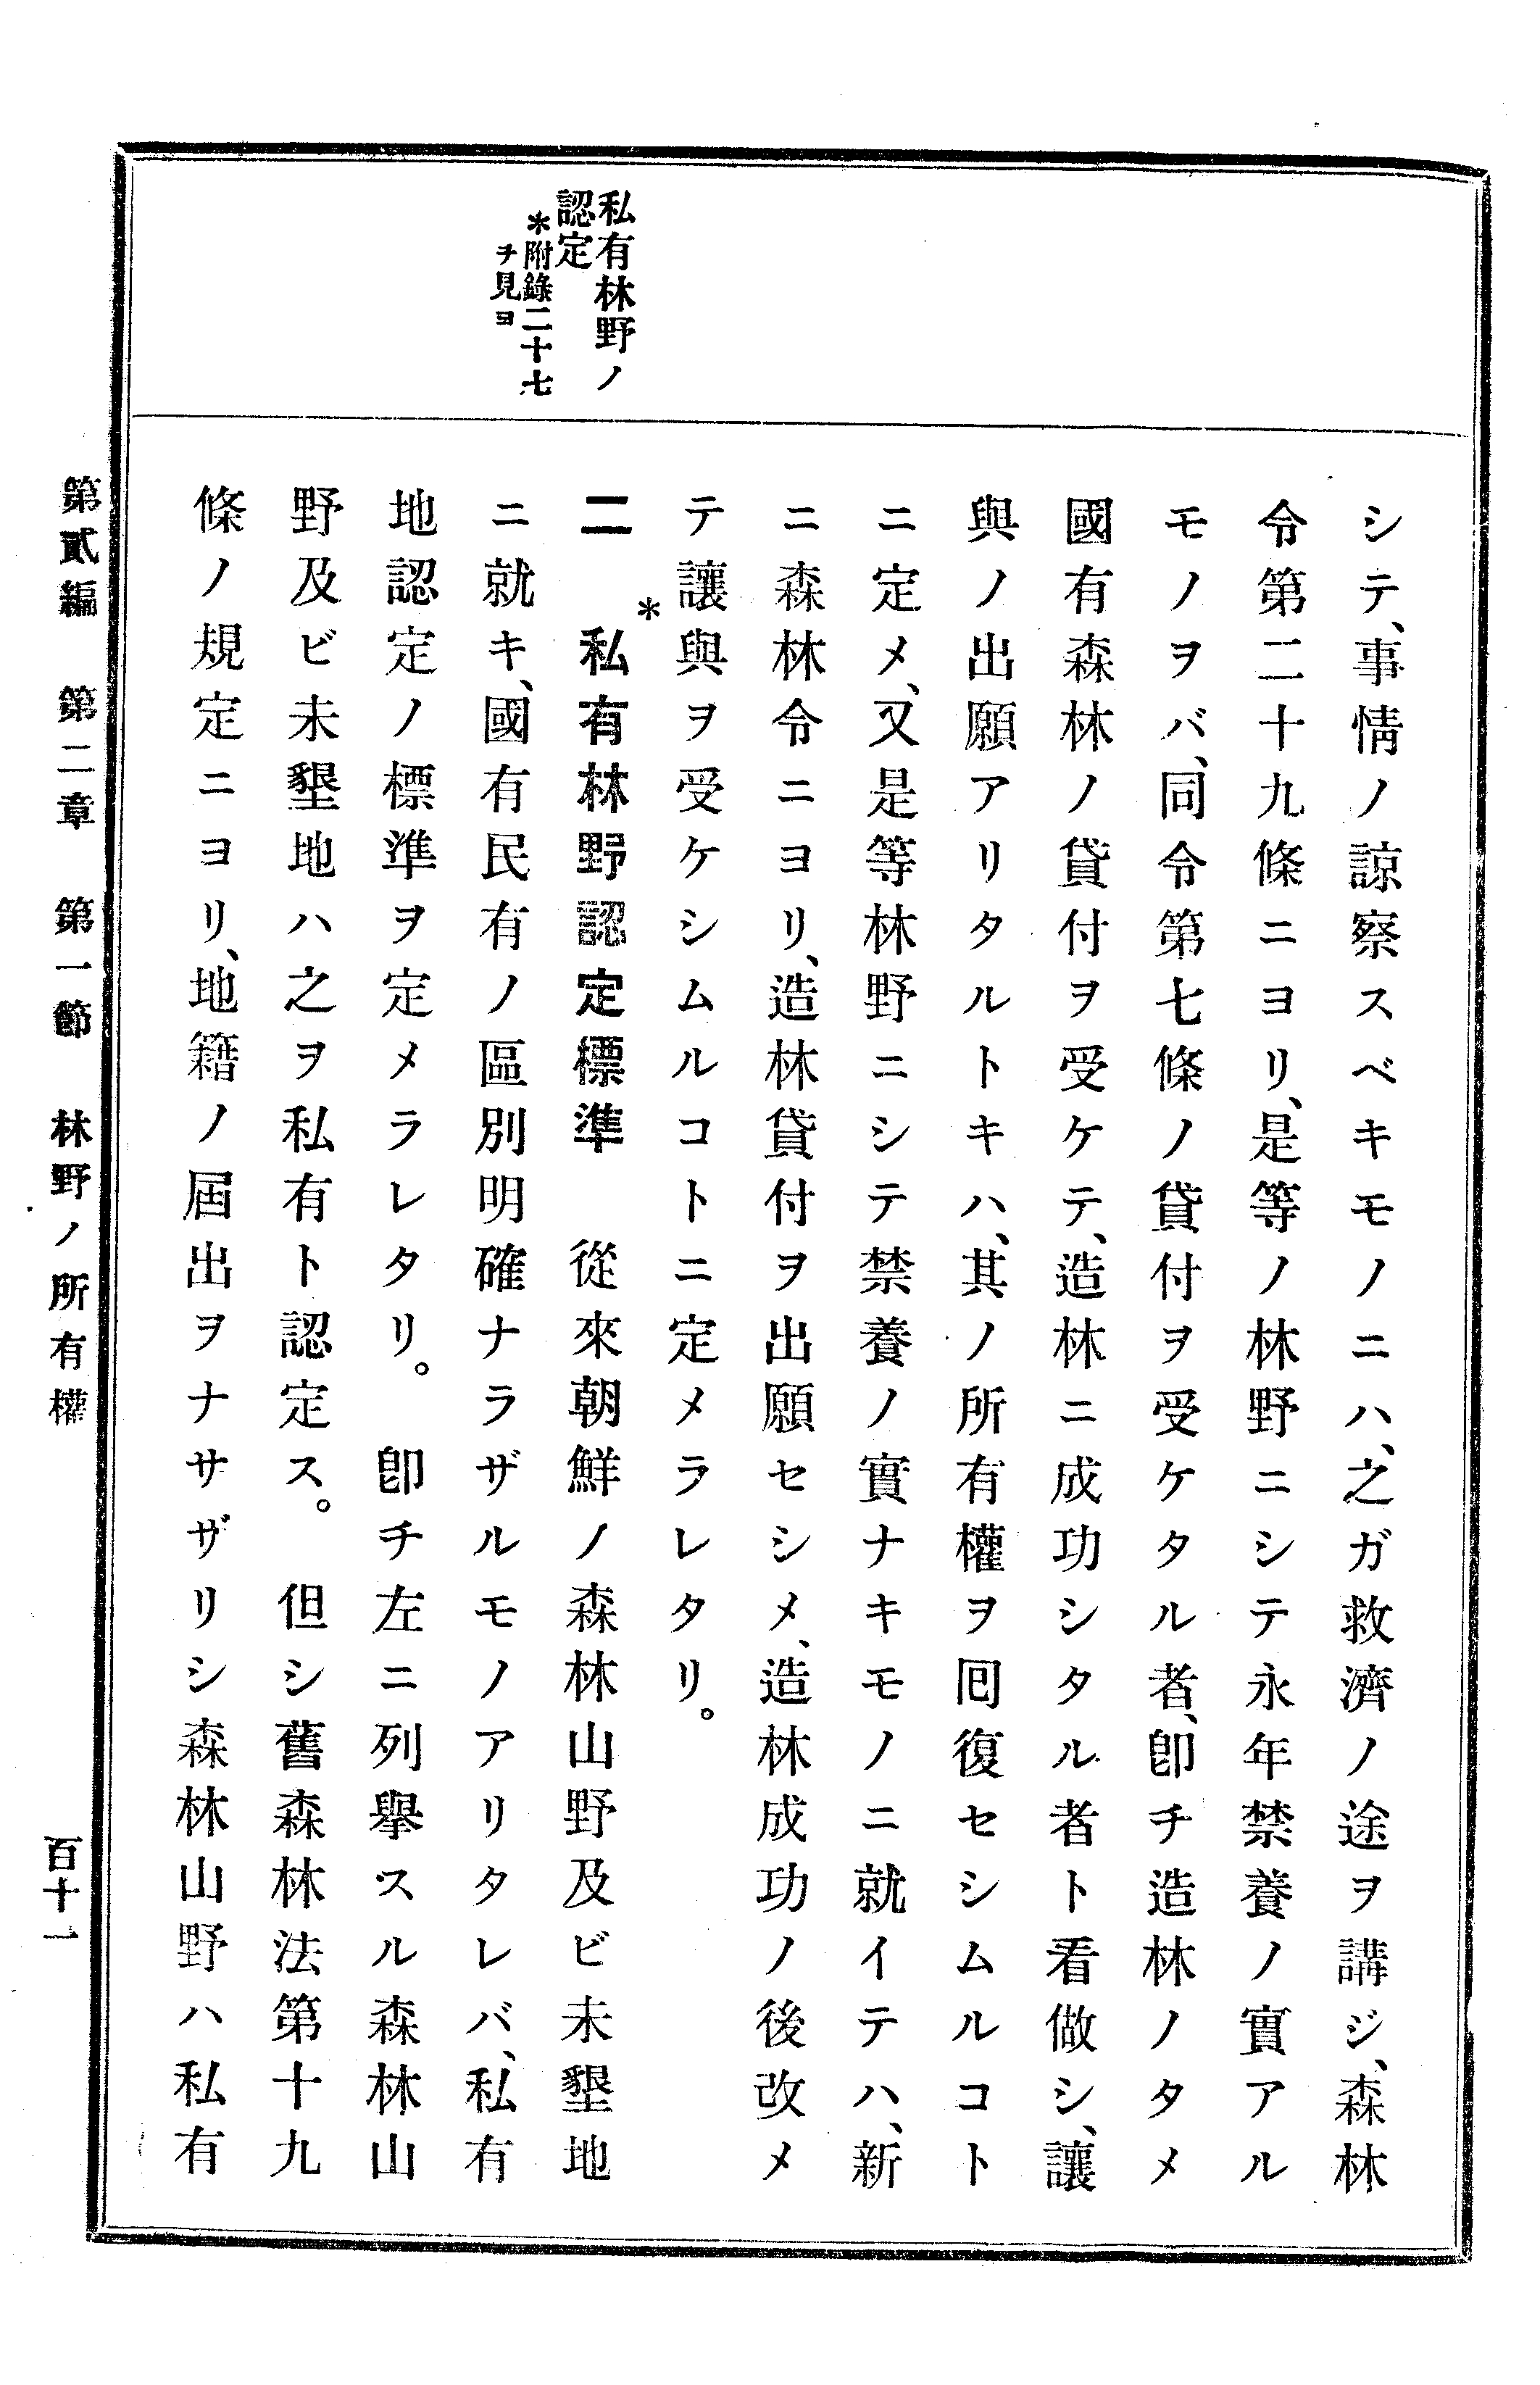 私有林野ノ
認定
＊附錄二十七
ヲ見ヨ
シテ、事情ノ諒察スベキモノニハ、之ガ救濟ノ途ヲ講ジ、森林
令第二十九條ニヨリ、是等ノ林野ニシテ永年禁養ノ實アル
モノヲバ、同令第七條ノ貸付ヲ受ケタル者、卽チ造林ノタメ
國有森林ノ貸付ヲ受ケテ、造林ニ成功シタル者ト看做シ、讓
與ノ出願アリタルトキハ、其ノ所有權ヲ囘復セシムルコト
ニ定メ、又是等林野ニシテ禁養ノ實ナキモノニ就イテハ、新
ニ森林令ニヨリ、造林貸付ヲ出願セシメ、造林成功ノ後改メ
テ讓與ヲ受ケシムルコトニ定メラレタリ。
二　＊私有林野認定標準　從來朝鮮ノ森林山野及ビ未墾地
ニ就キ、國有民有ノ區別明確ナラザルモノアリタレバ、私有
地認定ノ標準ヲ定メラレタリ。　卽チ左ニ列擧スル森林山
野及ビ未墾地ハ之ヲ私有ト認定ス。　但シ舊森林法第十九
條ノ規定ニヨリ、地籍ノ屆出ヲナサザリシ森林山野ハ私有
第貳編　第二章　第一節　林野ノ所有權　百十一